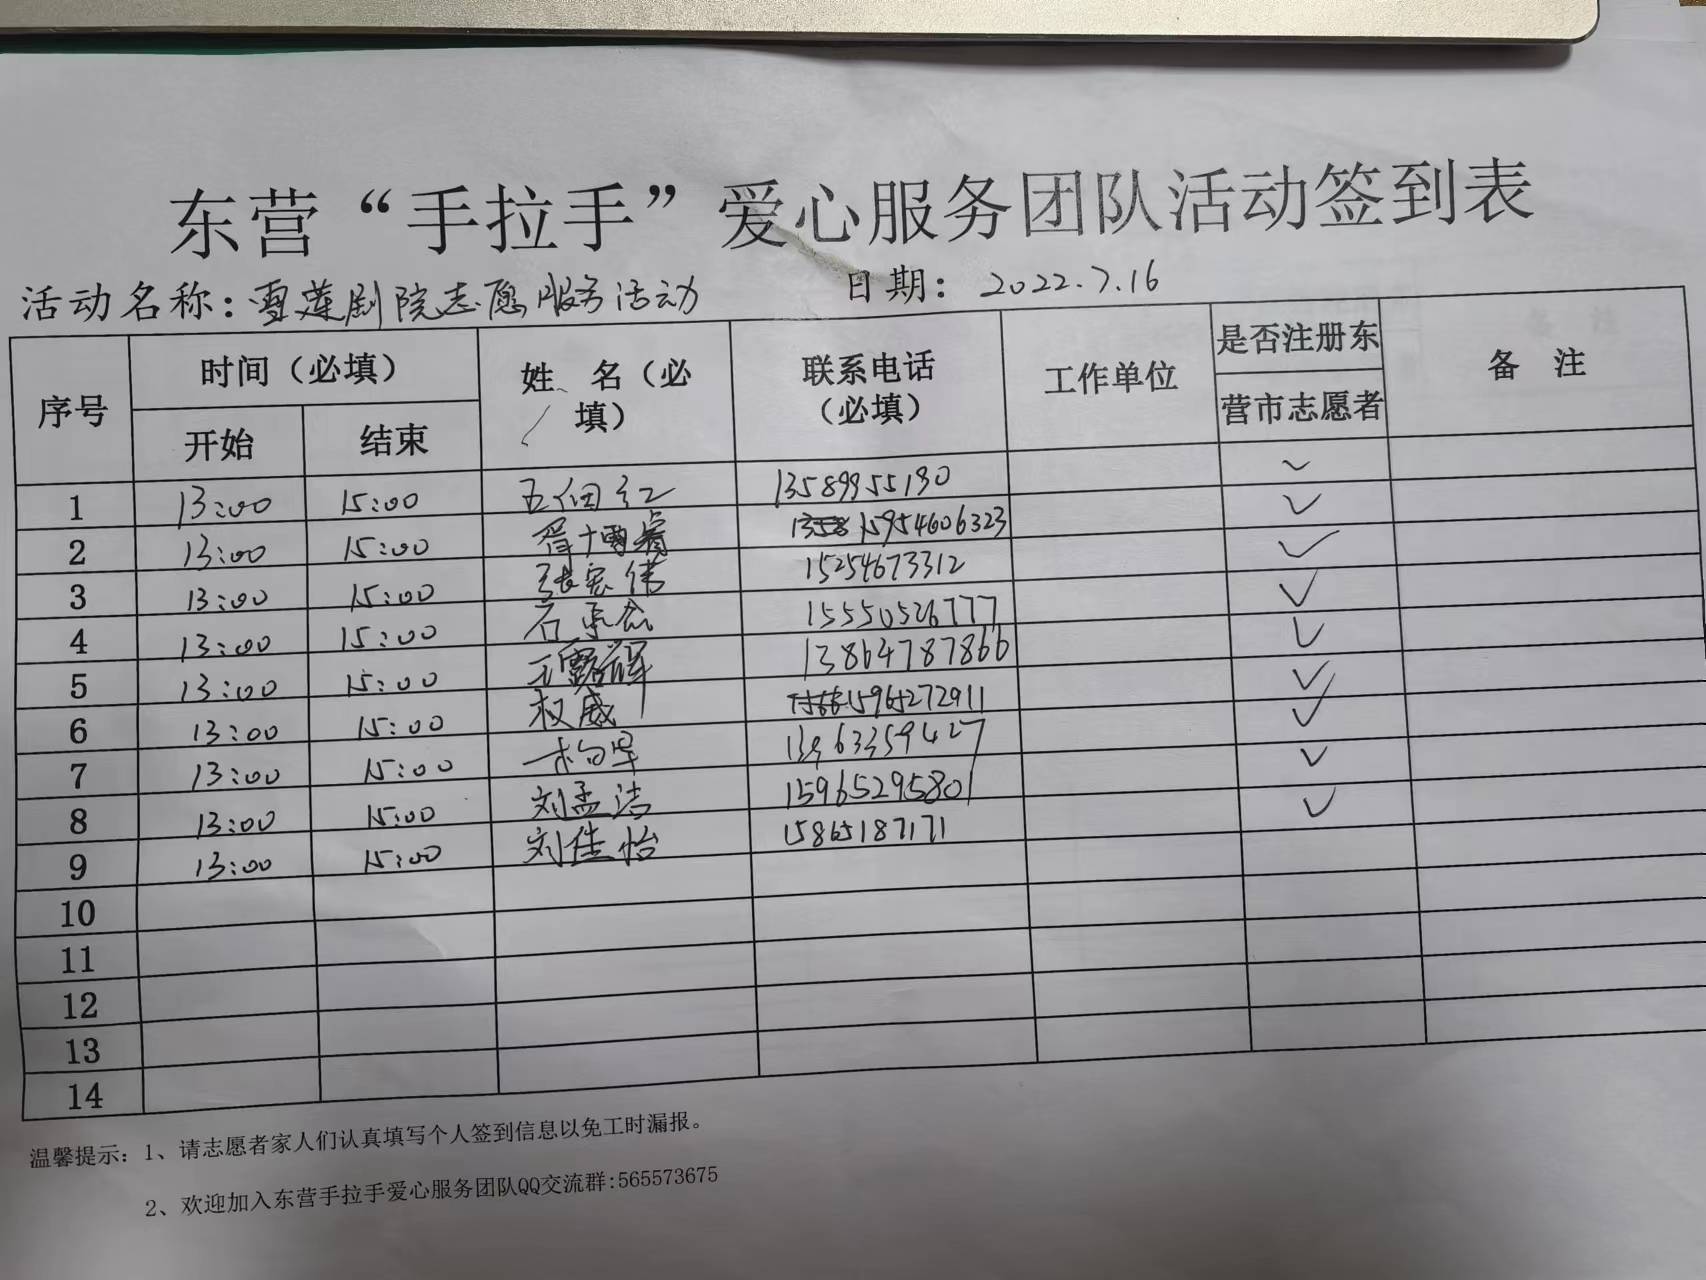 东营“手拉手”爱心服务团队活动签到表
活动名称：雪莲剧院志愿服务活动 日期：2022.7.16
序号 时间（必填） 姓 名（必填） 联系电话（必填） 工作单位 是否注册东营市志愿者 备 注
开始 结束
1 13:00 15:00 13589955190 ✓
2 13:00 15:00 胥博睿 15954606323 ✓
3 13:00 15:00 张宏伟 15254673312 ✓
4 13:00 15:00 石 15550526777 ✓
5 13:00 15:00 王露辉 13864787866 ✓
6 13:00 15:00 权威 15965272911 ✓
7 13:00 15:00 ✓
8 13:00 15:00 刘孟洁 15965295801 ✓
9 13:00 15:00 刘佳怡 15865187171 ✓
10
11
12
13
14
温馨提示：1、请志愿者家人们认真填写个人签到信息以免工时漏报。
2、欢迎加入东营手拉手爱心服务团队QQ交流群:565573675